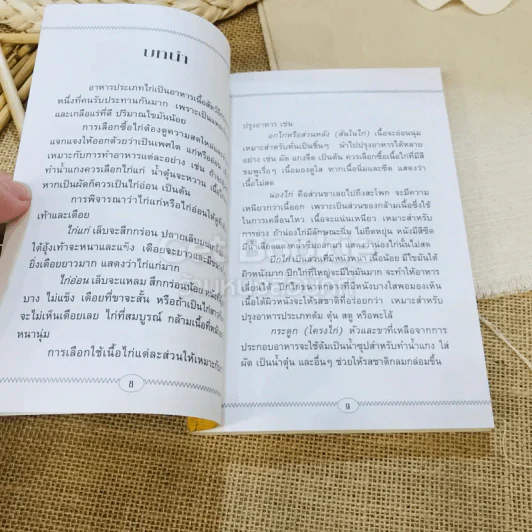 บทนำ
อาหารประเภทไก่เป็นอาหารเนื้อสัตว์
หนึ่งที่คนรับประทานกันมาก เพราะเป็น
และเกลือแร่ที่ดี ปริมาณไขมันน้อย
การเลือกซื้อไก่ต้องดูความสดใหม่
แจกแจงให้ออกด้วยว่าเป็นเพศใด แก่หรืออ่อน
เหมาะกับการทำอาหารแต่ละอย่าง เช่น ถ้า
ทำน้ำแกงควรเลือกไก่แก่ น้ำตุ๋นจะหวาน
หากเป็นผัดก็ควรเป็นไก่อ่อน เป็นต้น
การพิจารณาว่าไก่แก่หรือไก่อ่อนให้
เท้าและเดือย
ไก่แก่ เล็บจะสึกกร่อน ปลายเล็บมน
ใต้อุ้งเท้าจะหนาและแข็ง เดือยจะยาวและ
ยิ่งเดือยยาวมาก แสดงว่าไก่แก่มาก
ไก่อ่อน เล็บจะแหลม สึกกร่อนน้อย หนัง
บาง ไม่แข็ง เดือยที่ขาจะสั้น หรือถ้าเป็นไก่สาว
จะไม่เห็นเดือยเลย ไก่ที่สมบูรณ์ กล้ามเนื้อที่
หนานุ่ม
การเลือกใช้เนื้อไก่แต่ละส่วนให้เหมาะ
8
ปรุงอาหาร เช่น
อกไก่หรือส่วนหลัง (สันในไก่) เนื้อจะอ่อนนุ่ม
เหมาะสำหรับหั่นเป็นชิ้นๆ นำไปปรุงอาหารได้หลาย
อย่าง เช่น ผัด แกงจืด เป็นต้น ควรเลือกซื้อเนื้อไก่ที่มีสี
ชมพูเรื่อๆ เนื้อดูสด ไม่
เนื้อไม่สด
น่องไก่ คือส่วนขาเลยไปถึงสะโพก จะมีความ
เหนียวกว่าเนื้ออก เพราะเป็นส่วนของกล้ามเนื้อซึ่งใช้
ในการเคลื่อนไหว เนื้อจะแน่นเหนียว เหมาะสำหรับ
การย่าง ถ้าน่องไก่มีลักษณะนิ่ม ไม่ยืดหยุ่น หนังมีสีซีด
น่องไก่นั้นไม่สด
ปีกไก่ เป็นส่วนที่มีหนังหนา เนื้อน้อย มีไขมันใต้
ผิวหนังมาก ปีกไก่ที่ใหญ่จะมีไขมันมาก จะทำให้อาหาร
เลี่ยนได้
เนื้อใต้ผิวหนังจะให้รสชาติที่อร่อยกว่า เหมาะสำหรับ
ปรุงอาหารประเภทต้ม ตุ๋น สตู หรือพะโล้
กระดูก (โครงไก่) หัวและขาที่เหลือจากการ
ประกอบอาหารจะใช้ต้มเป็นน้ำซุปสำหรับทำน้ำแกง ใส่
ผัด เป็นน้ำตุ๋น และอื่นๆ ช่วยให้รสชาติกลมกล่อมขึ้น
9